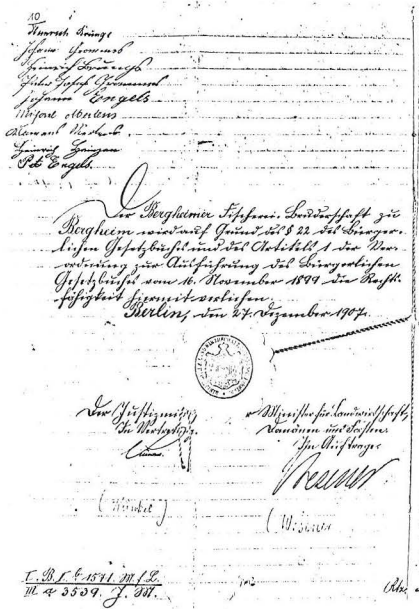 10
Heinrich
Johann Grommes
Heinrich
Peter Joseph Grommes
Johann Engels
Michael Mertens
Heinrich
Pet. Engels.
Der Bergheimer Fischerei-Bruderschaft zu
Bergheim wird auf Grund des § 22 des Bürger-
lichen Gesetzbuchs und des Artikels 1 der Ver-
ordnung zur Ausführung des Bürgerlichen
Gesetzbuches vom 16. November 1899 die Rechts-
fähigkeit hiermit verliehen.
Berlin, den 27. Dezember 1907.
Der Justizminister
In Vertretung.
Minister für Landwirtschaft,
Domänen und Forsten.
Im Auftrage
(Künkel)
(Wesener)
I. B. I. b 1571. M. f. L.
III a 3539. J. M.